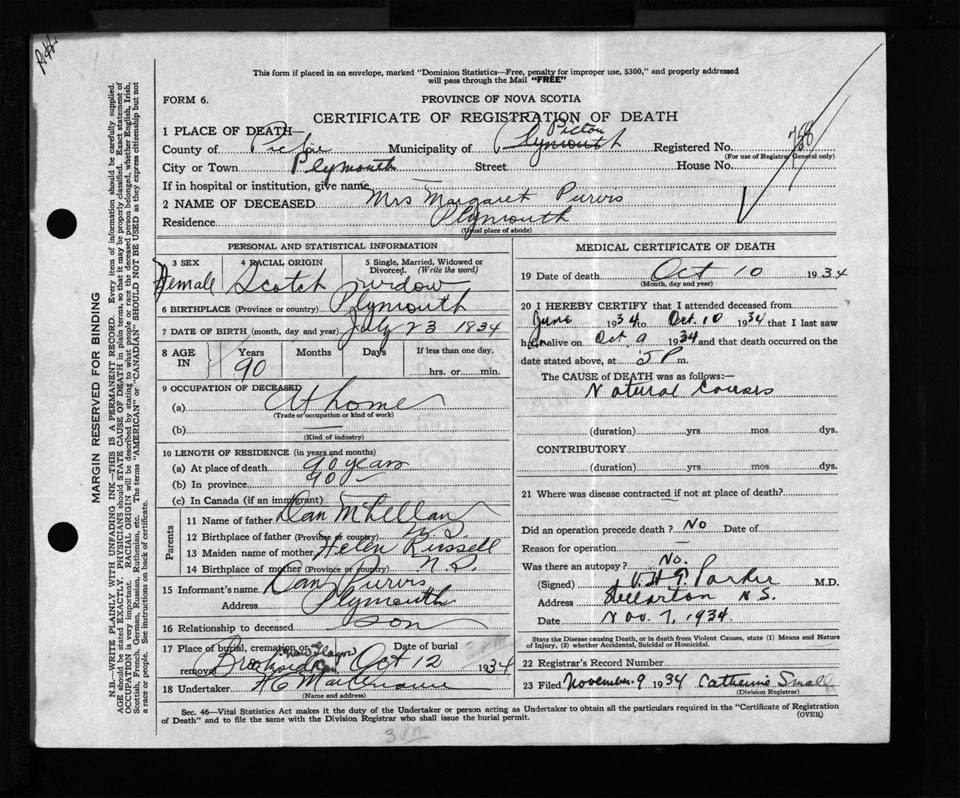 This form if placed in an envelope, marked "Dominion Statistics—Free, penalty for improper use, $300," and properly addressed
will pass through the Mail "FREE"
FORM 6.
PROVINCE OF NOVA SCOTIA
CERTIFICATE OF REGISTRATION OF DEATH
1 PLACE OF DEATH—
Pictou
County of Pictou Municipality of Plymouth Registered No. 758
(For use of Registrar General only)
City or Town Plymouth Street House No.
If in hospital or institution, give name —
2 NAME OF DECEASED Mrs Margaret Purvis
Residence Plymouth
(Usual place of abode)
PERSONAL AND STATISTICAL INFORMATION
3 SEX 4 RACIAL ORIGIN 5 Single, Married, Widowed or Divorced. (Write the word)
Female Scotch widow
6 BIRTHPLACE (Province or country) Plymouth
7 DATE OF BIRTH (month, day and year) July 23 1834
8 AGE IN Years Months Days If less than one day,
90 hrs. or min.
9 OCCUPATION OF DECEASED
(a) At home
(Trade or occupation or kind of work)
(b) —
(Kind of industry)
10 LENGTH OF RESIDENCE (in years and months)
(a) At place of death 90 years
(b) In province 90 —
(c) In Canada (if an immigrant) —
Parents
11 Name of father Dan McLellan
12 Birthplace of father (Province or country) N.S.
13 Maiden name of mother Helen Russell
14 Birthplace of mother (Province or country) N.S.
15 Informant's name Dan Purvis
Address Plymouth
16 Relationship to deceased son
17 Place of burial, cremation or removal Date of burial
Brookside Oct 12 1934
18 Undertaker
(Name and address)
MEDICAL CERTIFICATE OF DEATH
19 Date of death Oct 10 1934
(Month, day and year)
20 I HEREBY CERTIFY that I attended deceased from
June 1934 to Oct. 10 1934 that I last saw
her alive on Oct 9 1934 and that death occurred on the
date stated above, at 5 P m.
The CAUSE of DEATH was as follows:—
Natural Causes
(duration) yrs mos dys.
CONTRIBUTORY
(duration) yrs mos dys.
21 Where was disease contracted if not at place of death?
Did an operation precede death? No Date of
Reason for operation —
Was there an autopsy? No.
(Signed) Parker M.D.
Address Stellarton N.S.
Date Nov. 7, 1934.
State the Disease causing Death, or in death from Violent Causes, state (1) Means and Nature
of Injury, (2) whether Accidental, Suicidal or Homicidal.
22 Registrar's Record Number
23 Filed November 9 1934 Catherine Small
(Division Registrar)
Sec. 46—Vital Statistics Act makes it the duty of the Undertaker or person acting as Undertaker to obtain all the particulars required in the "Certificate of Registration
of Death" and to file the same with the Division Registrar who shall issue the burial permit.
(OVER)
MARGIN RESERVED FOR BINDING
N.B.—WRITE PLAINLY WITH UNFADING INK—THIS IS A PERMANENT RECORD. Every item of information should be carefully supplied.
AGE should be stated EXACTLY. PHYSICIANS should STATE CAUSE OF DEATH in plain terms, so that it may be properly classified. Exact statement of
OCCUPATION is very important. RACIAL ORIGIN will be described by stating to what people or race the deceased person belonged, whether English, Irish,
Scottish, French, German, Russian, Ruthenian, etc. The terms "AMERICAN" or "CANADIAN" SHOULD NOT BE USED as they express citizenship but not
a race or people. See instructions on back of certificate.